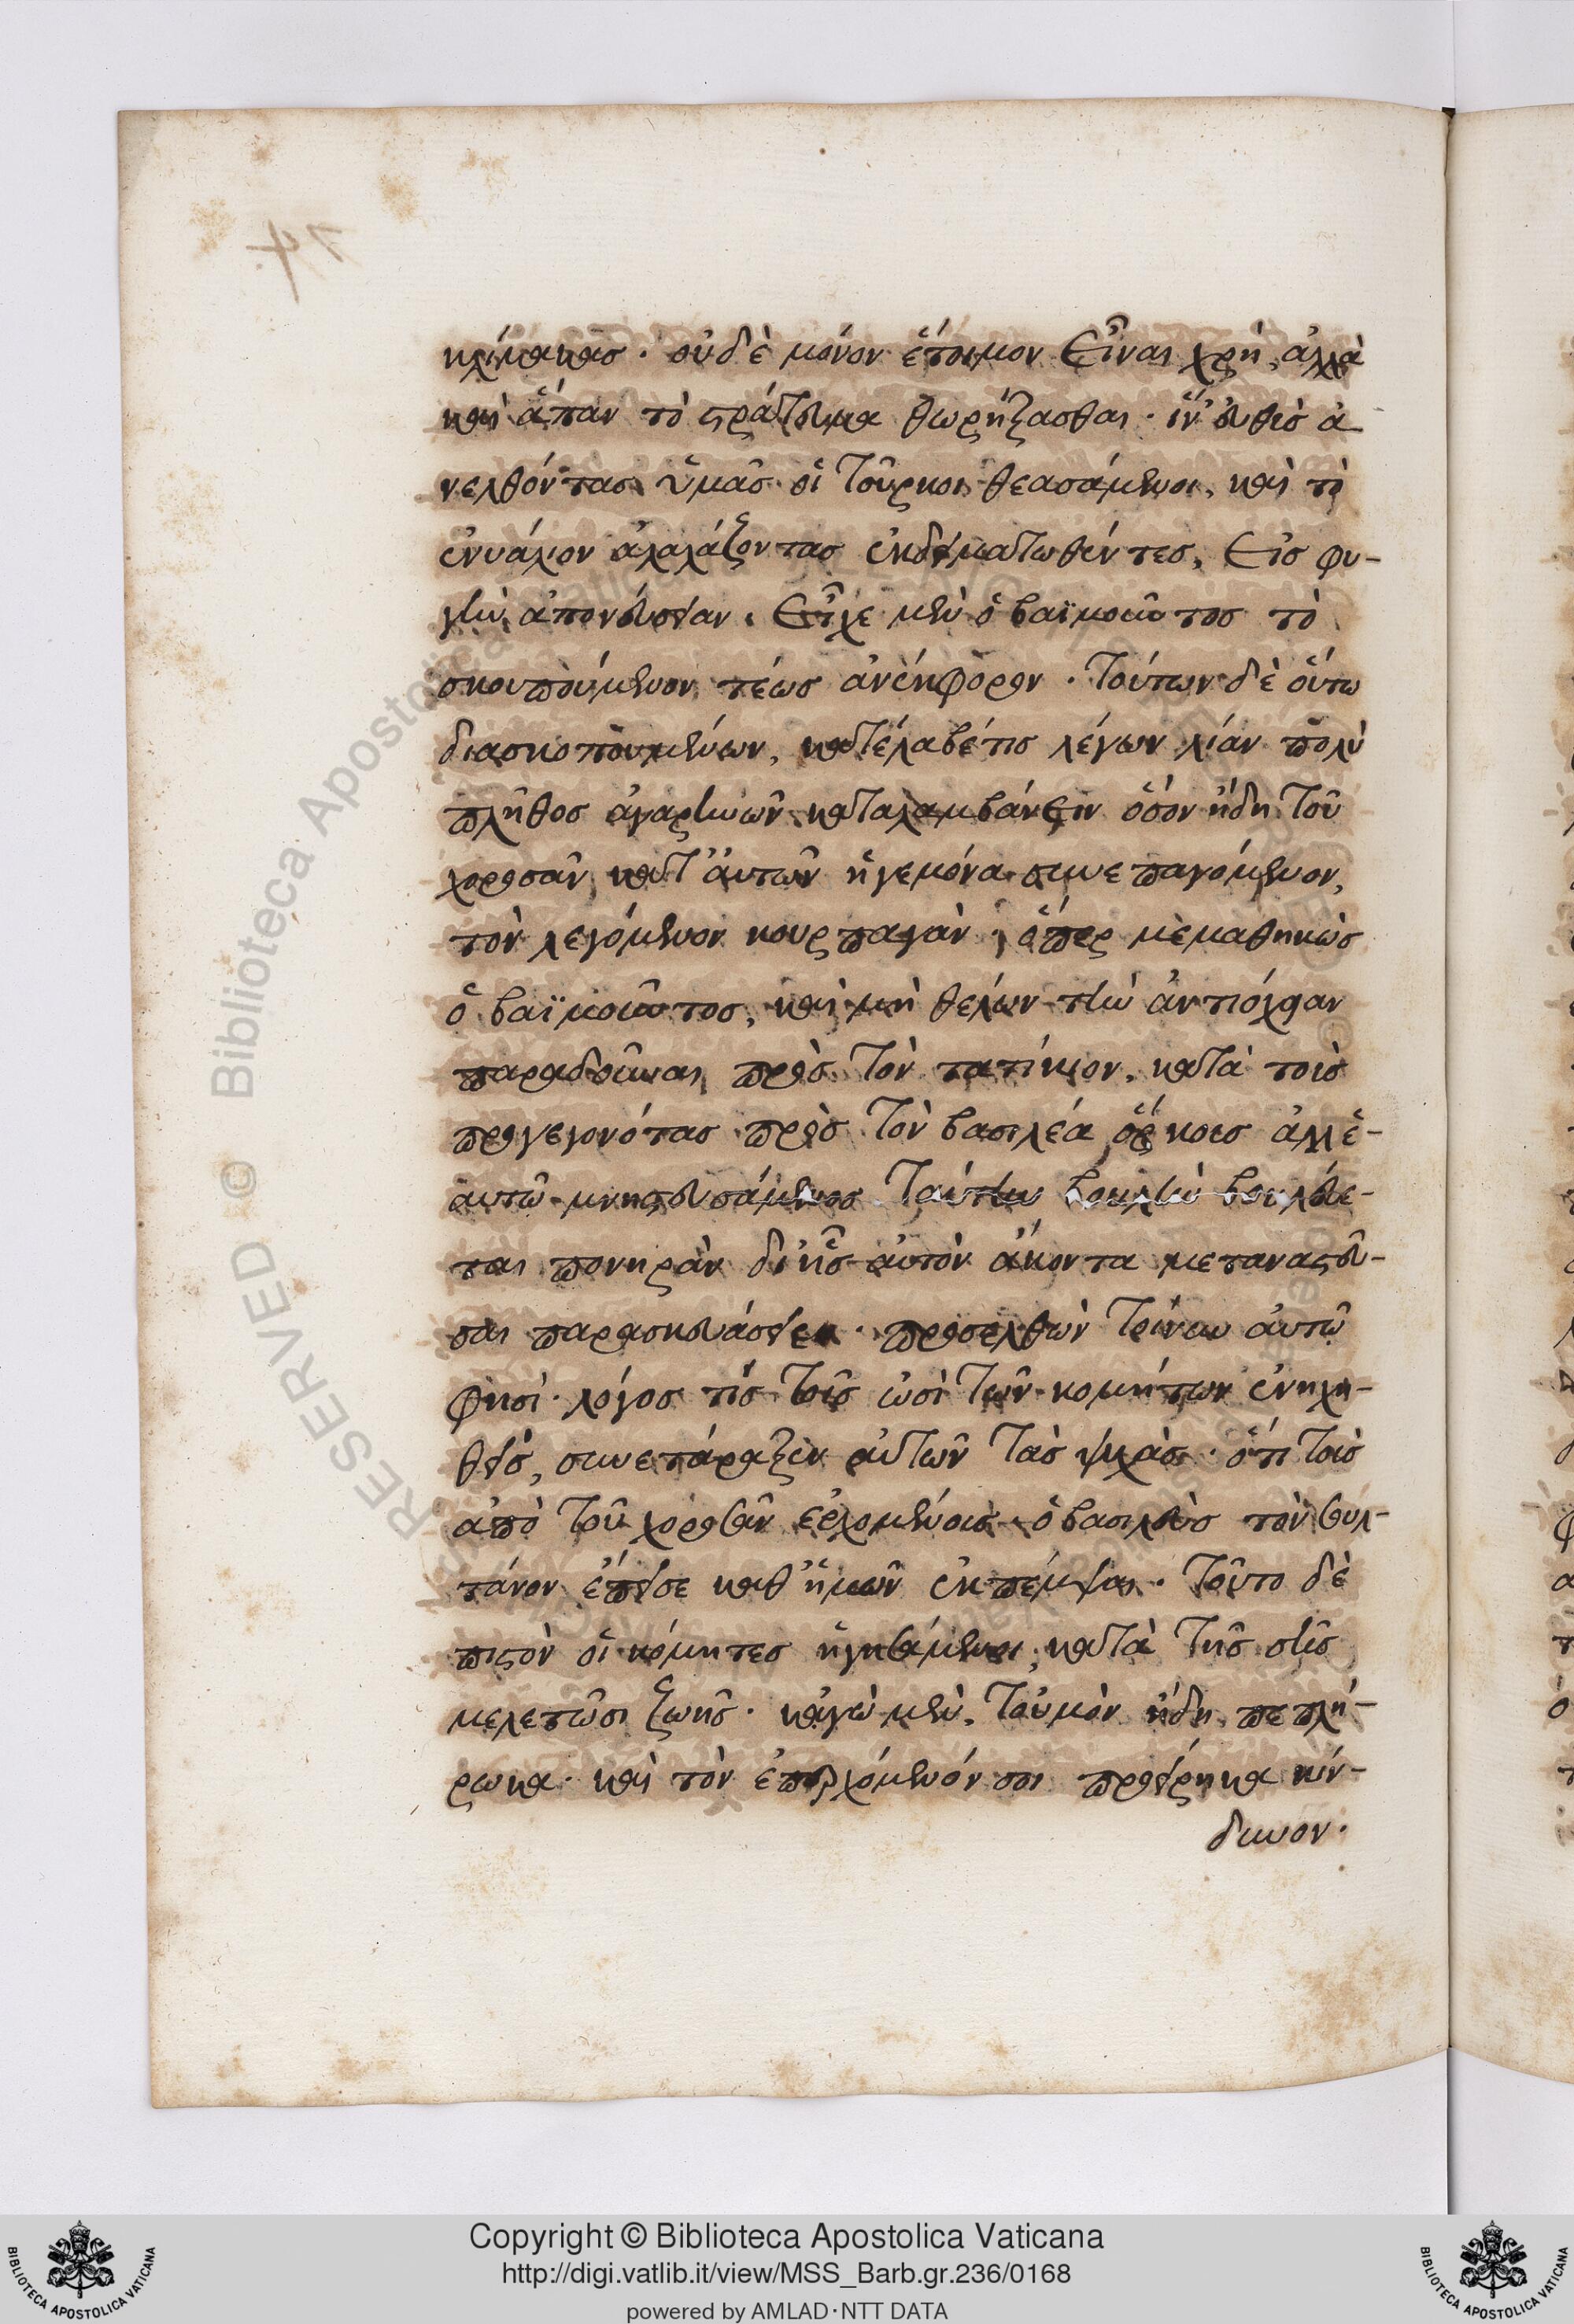 κλίμακας· οὐδὲ μόνον ἕτοιμον εἶναι χρὴ, ἀλλὰ
καὶ ἅπαν τὸ στράτευμα θωρήξασθαι· ἵν' εὐθὺς ἀ
νελθόντας ὑμᾶς οἱ Τοῦρκοι θεασάμενοι, καὶ τὸ
ἐνυάλιον ἀλαλάζοντας ἐκδειματωθέντες, εἰς φυ-
γὴν ἀπονεύσειαν. εἶχε μὲν ὁ βαϊμοῦντος τὸ
σκοπούμενον τέως ἀνέκφορον· τούτων δὲ οὕτω
διασκοπουμένων, κατέλαβέ τις λέγων λίαν πολὺ
πλῆθος ἀγαρηνῶν καταλαμβάνειν ὅσον ἤδη τοῦ
χοροσὰν κατ' αὐτῶν ἡγεμόνα συνεπαγόμενον,
τὸν λεγόμενον κουρπαγὰν· ὅπερ μεμαθηκὼς
ὁ βαϊμοῦντος, καὶ μὴ θέλων τὴν ἀντιόχειαν
παραδοῦναι πρὸς τὸν τατίκιον, κατὰ τοὺς
προγεγονότας πρὸς τὸν βασιλέα ὅρκους ἀλλ' ἑ-
αυτῷ μνηστευσάμενος ταύτην βουλὴν βουλεύε-
ται πονηρὰν δι' ἧς αὐτὸν ἄκοντα μεταναστεῦ-
σαι παρασκευάσειεν· προσελθὼν τοίνυν αὐτῷ
φησὶ· λόγος τίς τοῖς ὠσὶ τῶν κομήτων ἐνηχη-
θεὶς, συνετάραξεν αὐτῶν τὰς ψυχὰς· ὅτι τοὺς
ἀπὸ τοῦ χοροσὰν ἐρχομένους ὁ βασιλεὺς τὸν σουλ-
τάνον ἔπεισε καθ' ἡμῶν ἐκπέμψαι. τοῦτο δὲ
πιστὸν οἱ κόμητες ἡγησάμενοι, κατὰ τῆς σῆς
μελετῶσι ζωῆς· κἀγὼ μὲν, τοὐμὸν ἤδη πεπλή-
ρωκα· καὶ τὸν ἐπερχόμενόν σοι προείρηκα κίν-
δυνον.
Copyright © Biblioteca Apostolica Vaticana
http://digi.vatlib.it/view/MSS_Barb.gr.236/0168
powered by AMLAD·NTT DATA